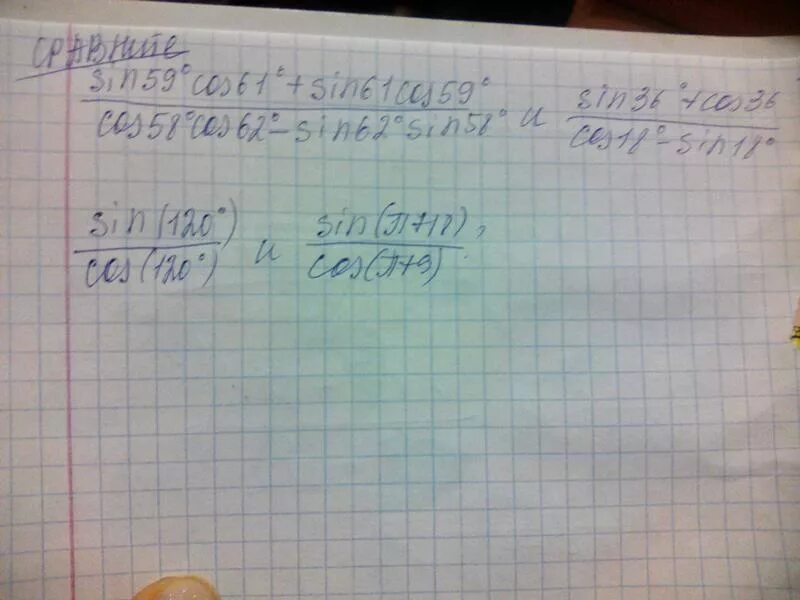 СРАВНИТЕ
sin59°cos61°+sin61cos59° / cos58°cos62°-sin62°sin58° и sin36°+cos36 / cos18°-sin18°
sin(120°) / cos(120°) и sin(π+18), / cos(π+9)